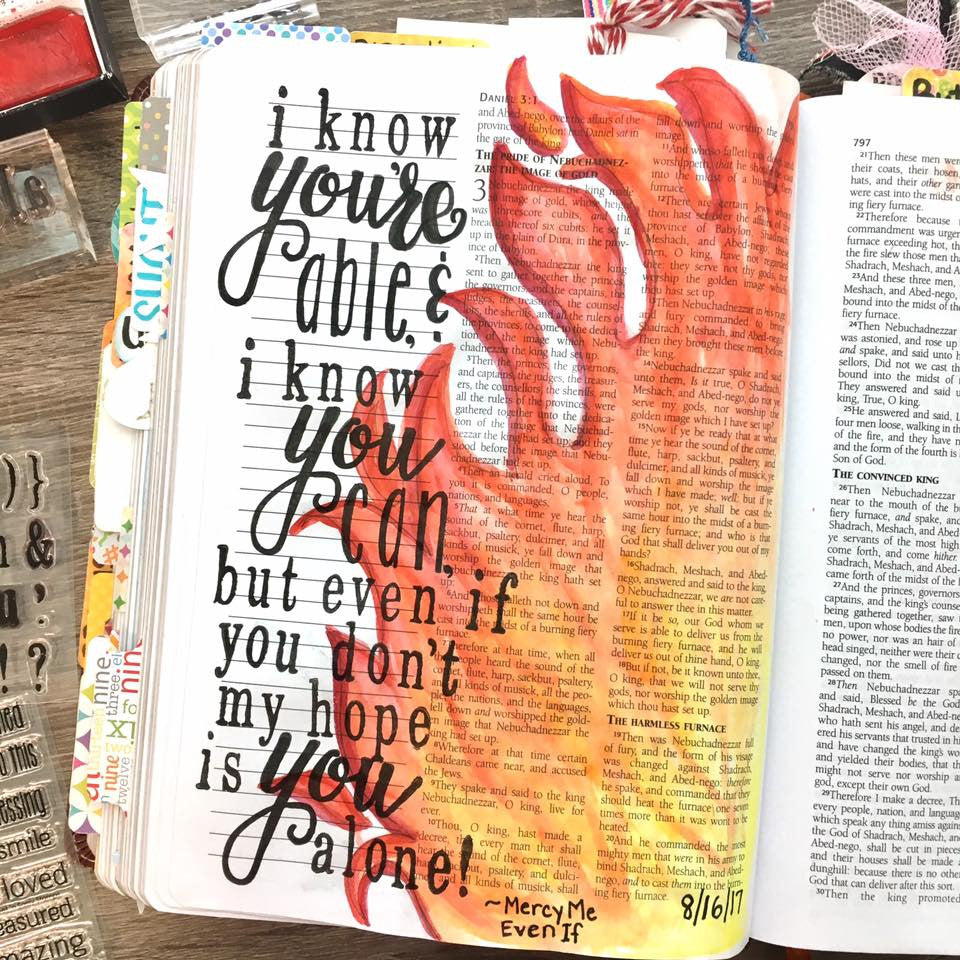 i know
you're
able, &
i know
you
can,
but even if
you don't
my hope
is you
alone!
~MercyMe
Even If
8/16/17
DANIEL 3:1
and Abed-nego, over the affairs of the
province of Babylon: but Daniel sat in
the gate of the king.
THE PRIDE OF NEBUCHADNEZ-
ZAR: THE IMAGE OF GOLD
3 Nebuchadnezzar the king made
an image of gold, whose height
was threescore cubits, and the
breadth thereof six cubits: he set it
up in the plain of Dura, in the prov-
ince of Babylon.
2Then Nebuchadnezzar the king
sent to gather together the princes,
the governors, and the captains, the
judges, the treasurers, the counsellors,
the sheriffs, and all the rulers of
the provinces, to come to the dedica-
tion of the image which Nebu-
chadnezzar the king had set up.
3Then the princes, the governors,
and captains, the judges, the treasur-
ers, the counsellors, the sheriffs, and
all the rulers of the provinces, were
gathered together unto the dedica-
tion of the image that Nebuchad-
nezzar the king had set up; and they
stood before the image that Nebu-
chadnezzar had set up.
4Then an herald cried aloud, To
you it is commanded, O people,
nations, and languages,
5That at what time ye hear the
sound of the cornet, flute, harp,
sackbut, psaltery, dulcimer, and all
kinds of musick, ye fall down and
worship the golden image that
Nebuchadnezzar the king hath set
up:
6And falleth not down and
worshippeth shall the same hour be
cast into the midst of a burning fiery
furnace.
therefore at that time, when all
people heard the sound of the
cornet, flute, harp, sackbut, psaltery,
all kinds of musick, all the people,
the nations, and the languages,
fell down and worshipped the gold-
en image that Nebuchadnezzar the
king had set up.
8Wherefore at that time certain
Chaldeans came near, and accused
the Jews.
9They spake and said to the king
Nebuchadnezzar, O king, live for
ever.
10Thou, O king, hast made a
decree, that every man that shall
hear the sound of the cornet, flute,
harp, sackbut, psaltery, and dulci-
mer, and all kinds of musick, shall
fall down and worship the
image:
11And whoso falleth not down and
worshippeth, that he should be cast
into the midst of a burning fiery
furnace.
12There are certain Jews whom
thou hast set over the affairs of the
province of Babylon, Shadrach,
Meshach, and Abed-nego; these
men, O king, have not regarded
thee: they serve not thy gods, nor
worship the golden image which
thou hast set up.
Then Nebuchadnezzar in his rage
and fury commanded to bring
Shadrach, Meshach, and Abed-nego.
Then they brought these men before
the king.
14Nebuchadnezzar spake and said
unto them, Is it true, O Shadrach,
Meshach, and Abed-nego, do not ye
serve my gods, nor worship the
golden image which I have set up?
15Now if ye be ready that at what
time ye hear the sound of the cornet,
flute, harp, sackbut, psaltery, and
dulcimer, and all kinds of musick, ye
fall down and worship the image
which I have made; well: but if ye
worship not, ye shall be cast the
same hour into the midst of a burn-
ing fiery furnace; and who is that
God that shall deliver you out of my
hands?
16Shadrach, Meshach, and Abed-
nego, answered and said to the king,
O Nebuchadnezzar, we are not care-
ful to answer thee in this matter.
17If it be so, our God whom we
serve is able to deliver us from the
burning fiery furnace, and he will
deliver us out of thine hand, O king.
18But if not, be it known unto thee,
O king, that we will not serve thy
gods, nor worship the golden image
which thou hast set up.
THE HARMLESS FURNACE
19Then was Nebuchadnezzar full
of fury, and the form of his visage
was changed against Shadrach,
Meshach, and Abed-nego: therefore
he spake, and commanded that they
should heat the furnace one seven
times more than it was wont to be
heated.
20And he commanded the most
mighty men that were in his army to
bind Shadrach, Meshach, and Abed-
nego, and to cast them into the burn-
ing fiery furnace.
797
21Then these men were
their coats, their hosen,
hats, and their other gar
were cast into the midst of
ing fiery furnace.
22Therefore because
commandment was urgent
furnace exceeding hot, the
the fire slew those men that
Shadrach, Meshach, and A
23And these three men,
Meshach, and Abed-nego,
bound into the midst of
fiery furnace.
24Then Nebuchadnezzar
was astonied, and rose up
and spake, and said unto h
sellors, Did not we cast th
bound into the midst of
They answered and said u
king, True, O king.
25He answered and said, L
four men loose, walking in th
of the fire, and they have n
and the form of the fourth is
Son of God.
THE CONVINCED KING
26Then Nebuchadnezzar
near to the mouth of the bu
fiery furnace, and spake, and
Shadrach, Meshach, and Abed-
ye servants of the most high
come forth, and come hither.
Shadrach, Meshach, and Abed-
came forth of the midst of the
27And the princes, governors
captains, and the king's counse
being gathered together, saw
men, upon whose bodies the fire
no power, nor was an hair of
head singed, neither were their c
changed, nor the smell of fire
passed on them.
28Then Nebuchadnezzar spa
and said, Blessed be the God
Shadrach, Meshach, and Abed-ne
who hath sent his angel, and de
ered his servants that trusted in hi
and have changed the king's wo
and yielded their bodies, that th
might not serve nor worship a
god, except their own God.
29Therefore I make a decree, Th
every people, nation, and language
which speak any thing amiss agains
the God of Shadrach, Meshach, an
Abed-nego, shall be cut in pieces
and their houses shall be made
dunghill: because there is no other
God that can deliver after this sort.
30Then the king promoted
smile
loved